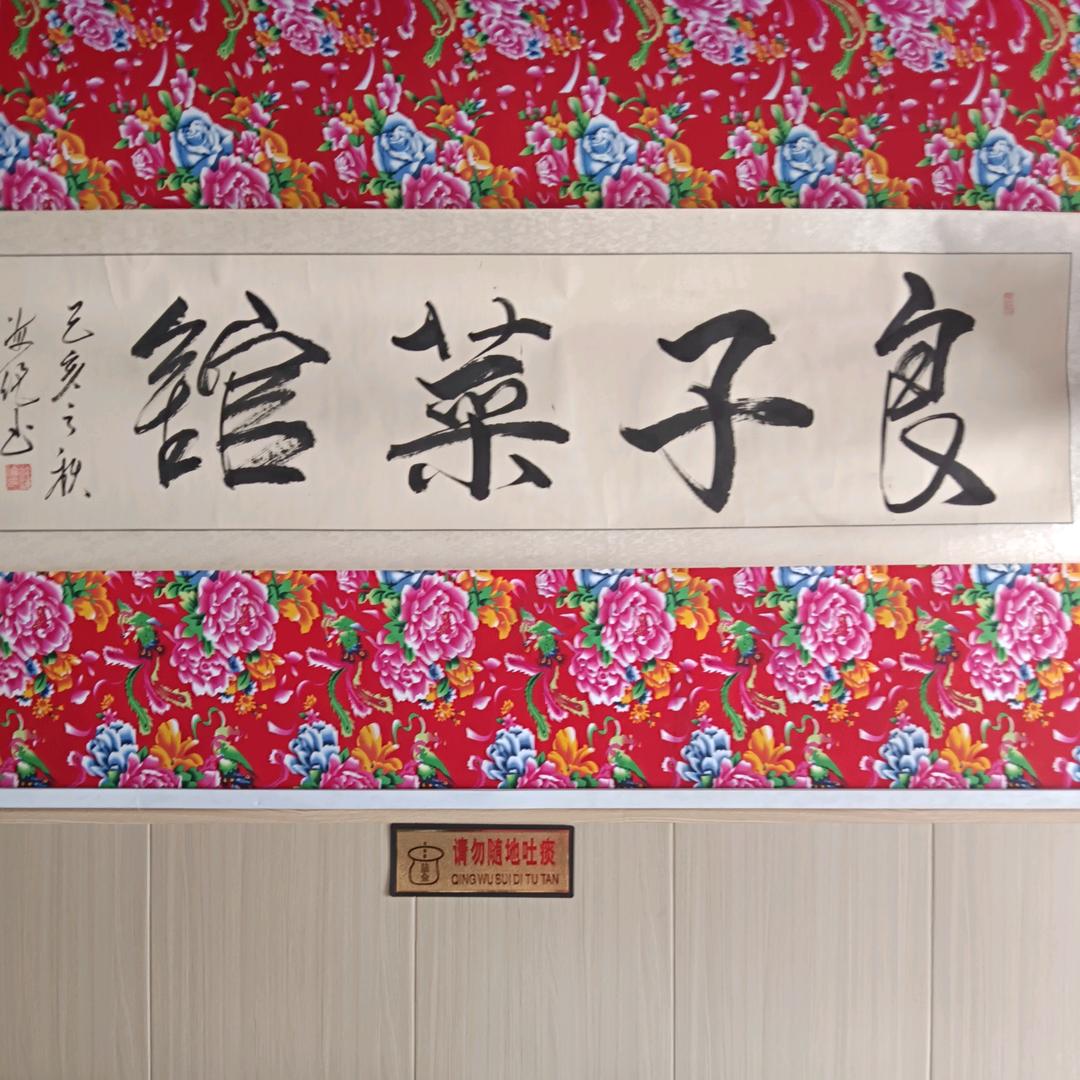 良子菜舘
己亥之秋
请勿随地吐痰
QING WU SUI DI TU TAN